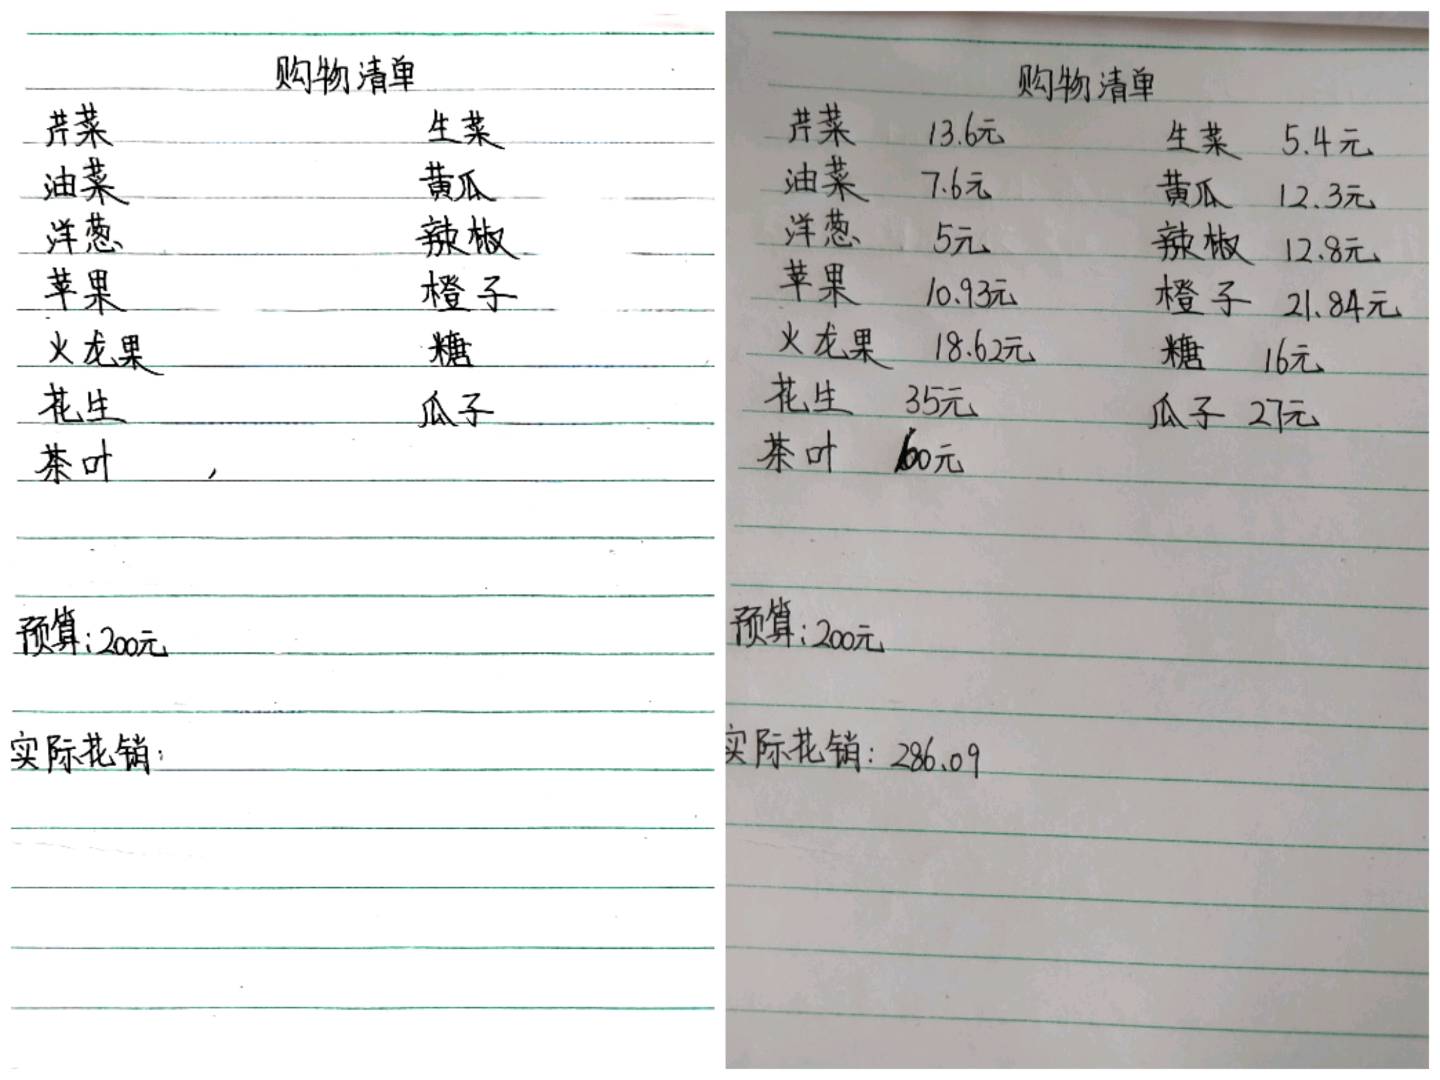 购物清单
芹菜 生菜
油菜 黄瓜
洋葱 辣椒
苹果 橙子
火龙果 糖
花生 瓜子
茶叶
预算:200元
实际花销:
购物清单
芹菜 13.6元 生菜 5.4元
油菜 7.6元 黄瓜 12.3元
洋葱 5元 辣椒 12.8元
苹果 10.93元 橙子 21.84元
火龙果 18.62元 糖 16元
花生 35元 瓜子 27元
茶叶 元
预算:200元
实际花销:286.09